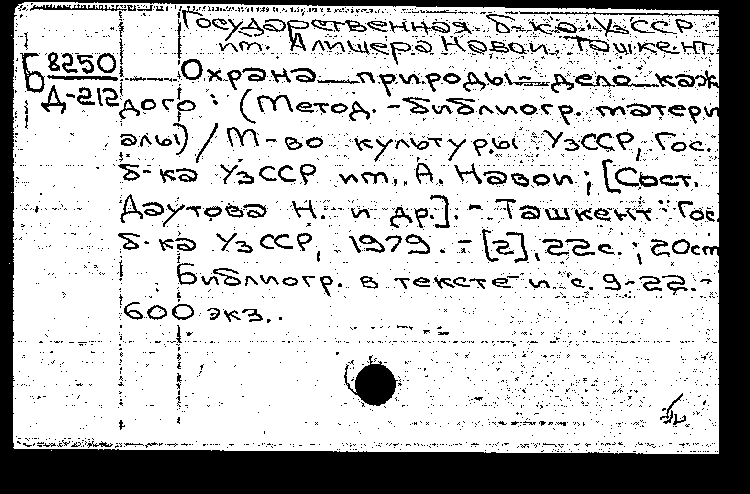 Государственная б-ка УзССР
им. Алишера Навои. Ташкент.
Б 8250
Д-212
Охрана природы - дело каж
дого : (Метод.-библиогр. матери
алы) / М-во культуры УзССР, Гос.
б-ка УзССР им. А. Навои ; [Сост.
Даутова Н. и др.]. - Ташкент : Гос.
б-ка УзССР, 1979. - [2], 22с. ; 20см
Библиогр. в тексте и с. 9-22.-
600 экз.